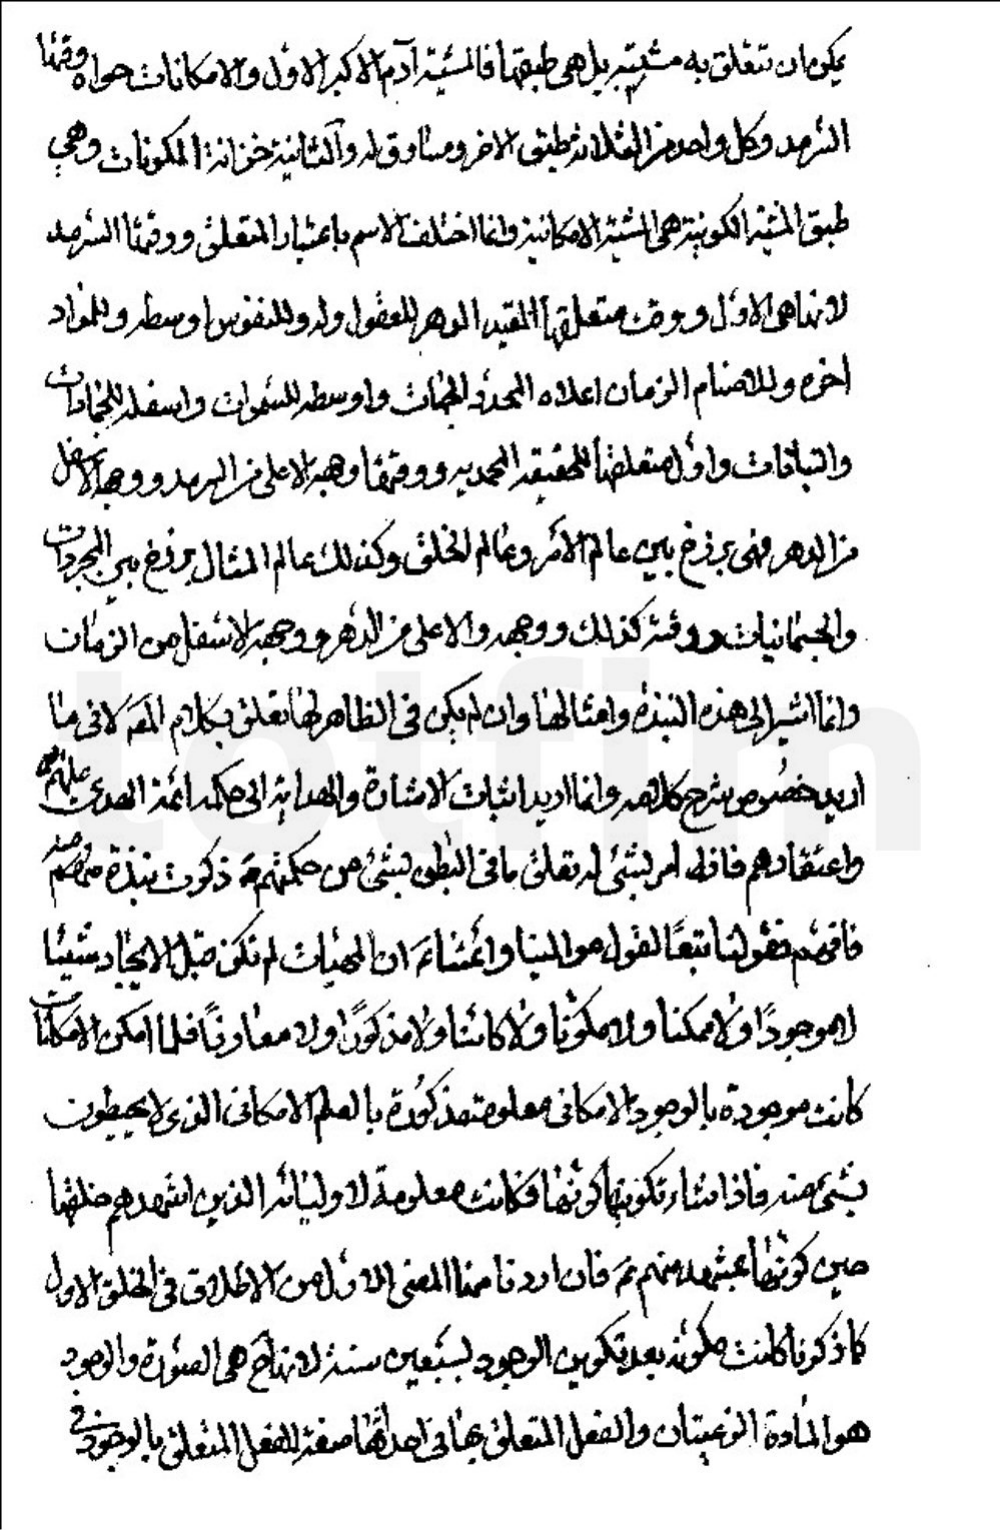 يمكن ان تتعلق به مشيته بل هي طبقها فالمشية آدم الاكبر الاول والامكانات حواه وقتها
السرمد وكل واحد من الثلاثة طبق الاخر ومساوق له والثانية خزانة المكونات وهي
طبق المشية الكونية هي المشية الامكانية وانما اختلف الاسم باعتبار المتعلق ووقتها السرمد
لانها هي الاول ووقت متعلقها المقيد الدهر للعقول اوله وللنفوس اوسطه وللمواد
اخره وللاجسام الزمان اعلاه المحدد الجهات واوسطه للسموات واسفله للجمادات
والنباتات واول متعلقها للحقيقة المحمدية ووقتها وجهه الاعلى من السرمد ووجهه الاسفل
من الدهر فهي برزخ بين عالم الامر وعالم الخلق وكذلك عالم المثال برزخ بين المجردات
والجسمانيات ووقته كذلك ووجهه الاعلى من الدهر ووجهه الاسفل من الزمان
وانما اشير الى هذه النبذة وامثالها وان لم يكن في الظاهر لها تعلق بكلام المصم لاني ما
اريد خصوص شرح كلامه وانما اريد اثبات الاشارة والهداية الى حكمة ائمة الهدى عليهم
واعتقادهم فاذا مر بشئ له تعلق ما في البطن بشئ من حكمتهم ع ذكرت نبذة منه
فافهم فقولنا تبعا لقول موالينا وائمتنا ع ان المهيات لم تكن قبل الايجاد شيئا
لا موجودا ولا ممكنا ولا مكونا ولا كائنا ولا مذكورا ولا مقارنا فلما امكن الامكانات
كانت موجودة بالوجود الامكاني معلومة مذكورة بالعلم الامكاني الذي لا يحيطون
بشئ منه فاذا شاء تكوينها كونها فكانت معلومة لاوليائه الذين اشهدهم خلقها
حين كونها بمشهد منهم ع فان اردنا منها المعنى الاول من الاطلاق في الخلق الاول
كما ذكرنا كانت مكونة بعد تكوين الوجود بسبعين سنة لانها ح هي الصورة والوجود
هو المادة النوعيتان والفعل المتعلق بها في احداثها صفة للفعل المتعلق بالوجود في